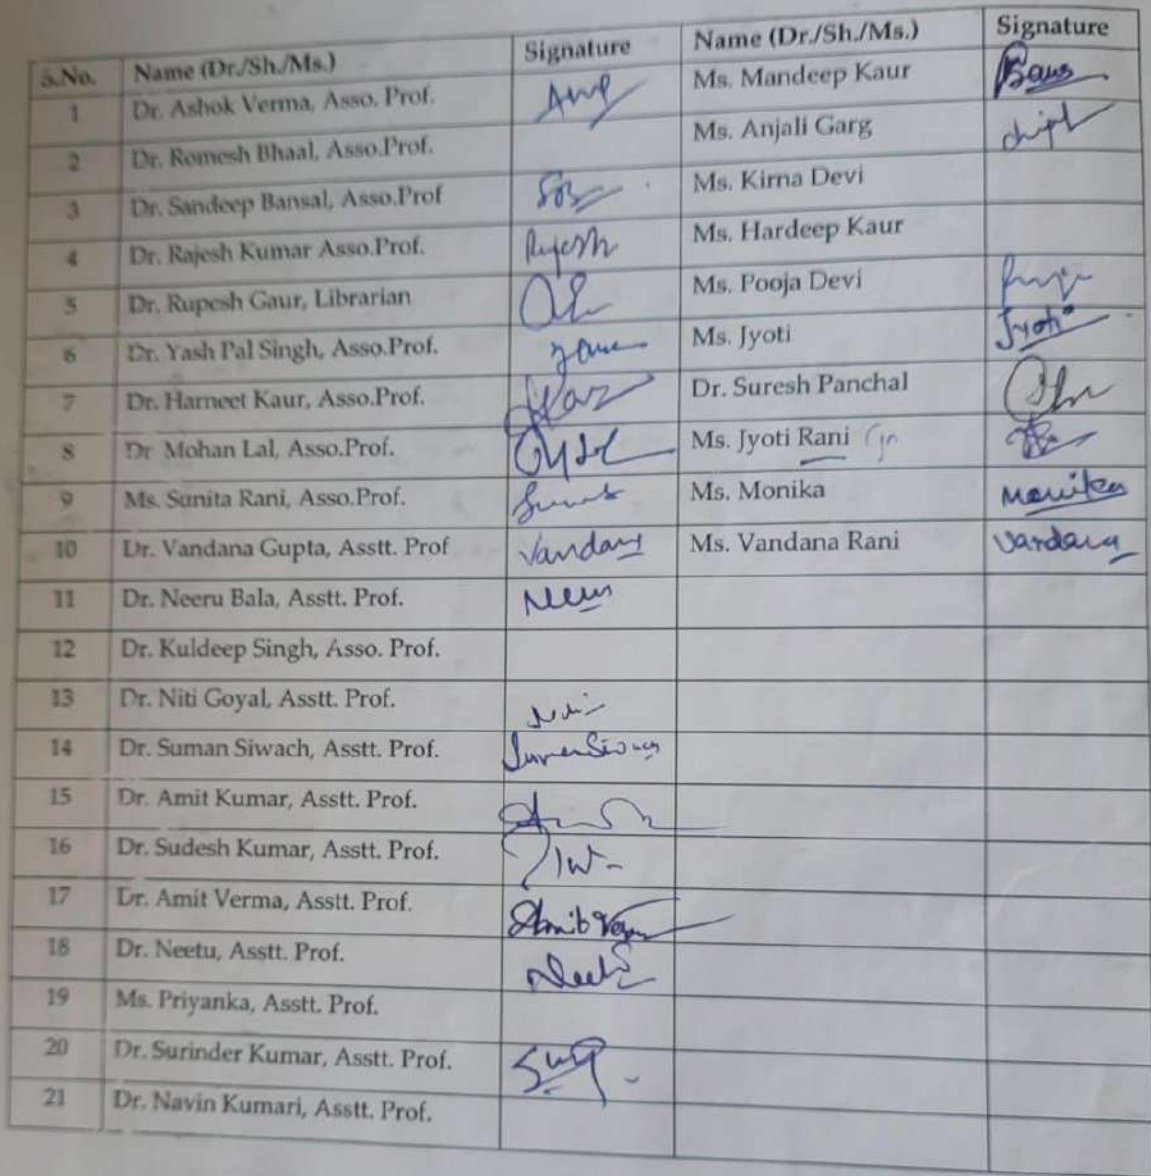 S.No. Name (Dr./Sh./Ms.) Signature Name (Dr./Sh./Ms.) Signature
1 Dr. Ashok Verma, Asso. Prof. Ms. Mandeep Kaur
2 Dr. Romesh Bhaal, Asso.Prof. Ms. Anjali Garg
3 Dr. Sandeep Bansal, Asso.Prof Ms. Kirna Devi
4 Dr. Rajesh Kumar Asso.Prof. Rajesh Ms. Hardeep Kaur
5 Dr. Rupesh Gaur, Librarian Ms. Pooja Devi
6 Dr. Yash Pal Singh, Asso.Prof. Ms. Jyoti Jyoti
7 Dr. Harneet Kaur, Asso.Prof. Dr. Suresh Panchal
8 Dr Mohan Lal, Asso.Prof. Ms. Jyoti Rani
9 Ms. Sunita Rani, Asso.Prof. Ms. Monika Monika
10 Dr. Vandana Gupta, Asstt. Prof Vandana Ms. Vandana Rani Vandana
11 Dr. Neeru Bala, Asstt. Prof.
12 Dr. Kuldeep Singh, Asso. Prof.
13 Dr. Niti Goyal, Asstt. Prof.
14 Dr. Suman Siwach, Asstt. Prof. Suman Siwach
15 Dr. Amit Kumar, Asstt. Prof.
16 Dr. Sudesh Kumar, Asstt. Prof.
17 Dr. Amit Verma, Asstt. Prof. Amit Verma
18 Dr. Neetu, Asstt. Prof. Neetu
19 Ms. Priyanka, Asstt. Prof.
20 Dr. Surinder Kumar, Asstt. Prof.
21 Dr. Navin Kumari, Asstt. Prof.